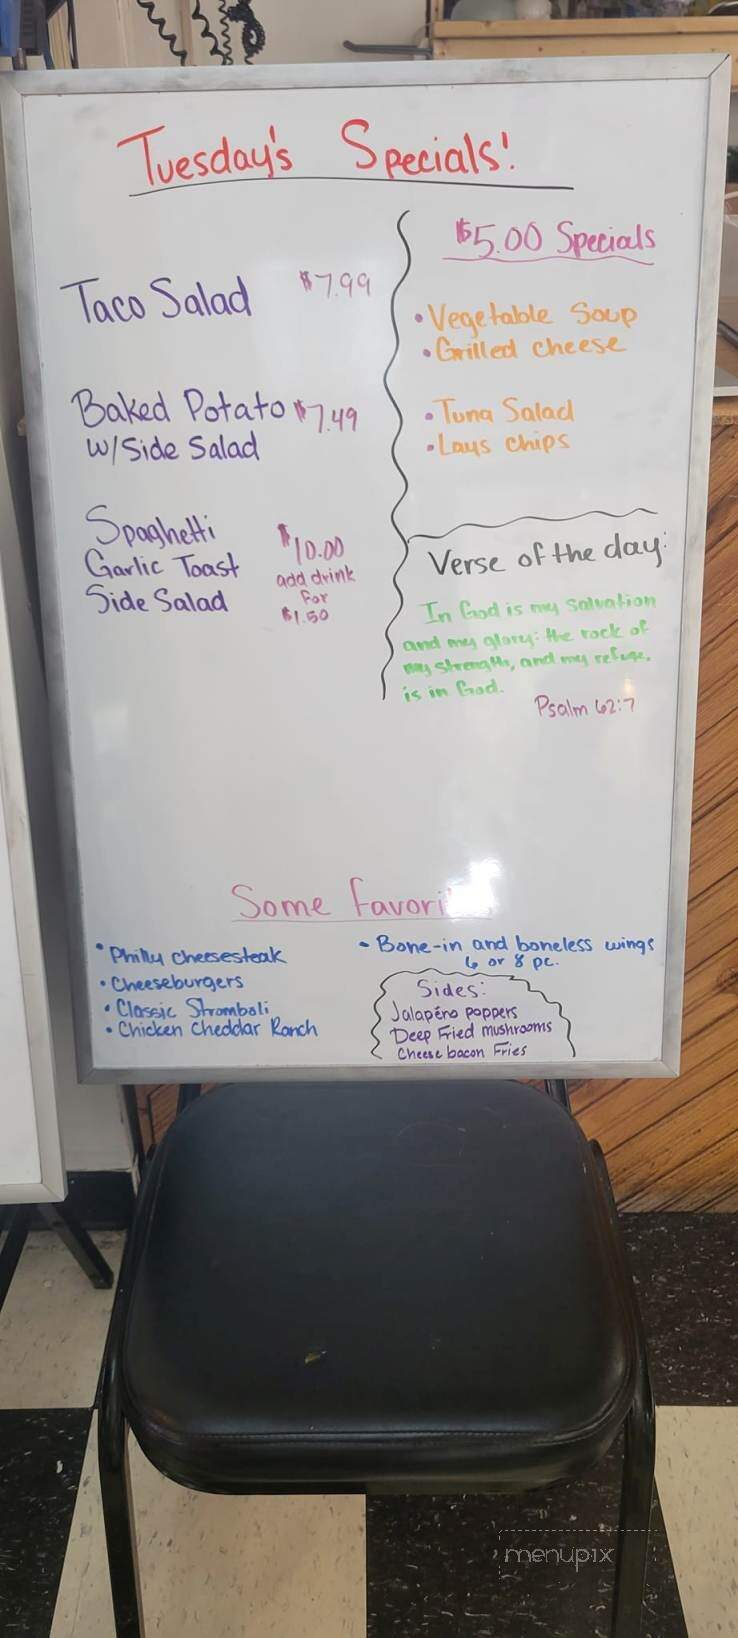 Tuesday's Specials!
Taco Salad $7.99
Baked Potato $7.49
w/Side Salad
Spaghetti
Garlic Toast
Side Salad
$10.00
add drink
for
$1.50
$5.00 Specials
• Vegetable Soup
• Grilled cheese
• Tuna Salad
• Lays chips
Verse of the day:
In God is my salvation
and my glory: the rock of
my strength, and my refuge,
is in God.
Psalm 62:7
Some
• Philly cheesesteak
• Cheeseburgers
• Classic Stromboli
• Chicken Cheddar Ranch
• Bone-in and boneless wings
6 or 8 pc.
Sides:
Jalapéno poppers
Deep Fried mushrooms
Cheese bacon Fries
menupix